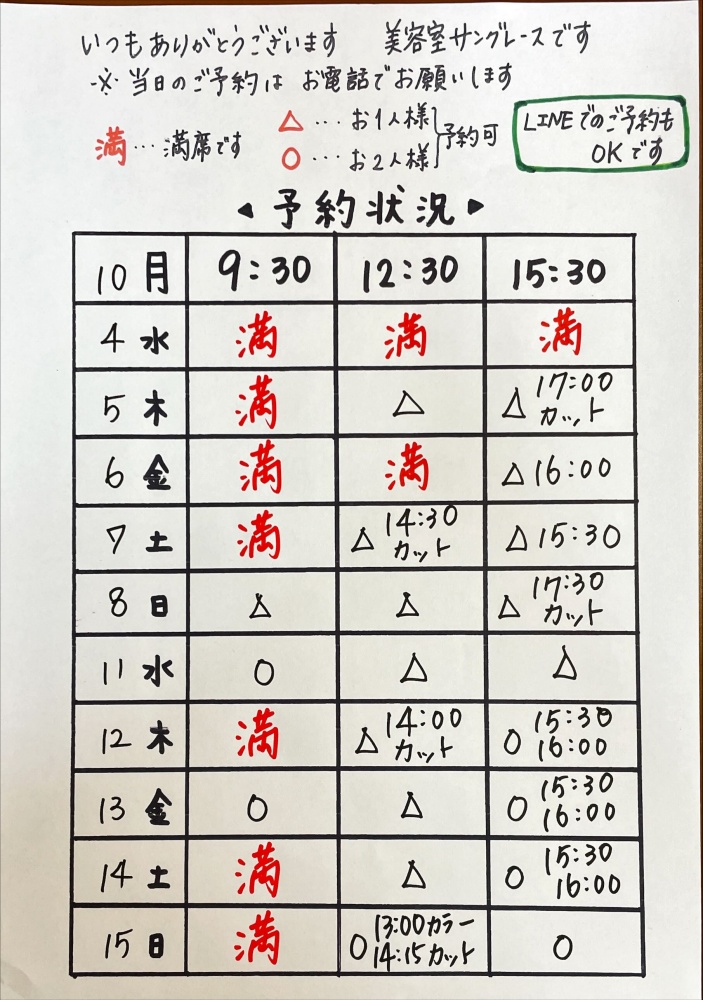 いつもありがとうございます 美容室サングレースです
※当日のご予約は お電話でお願いします
満…満席です
△…お1人様
○…お2人様
予約可
LINEでのご予約も
OKです
◀予約状況▶
10月 9:30 12:30 15:30
4 水 満 満 満
5 木 満 △ △17:00カット
6 金 満 満 △16:00
7 土 満 △14:30カット △15:30
8 日 △ △ △17:30カット
11 水 ○ △ △
12 木 満 △14:00カット ○15:30 16:00
13 金 ○ △ ○15:30 16:00
14 土 満 △ ○15:30 16:00
15 日 満 ○13:00カラー 14:15カット ○